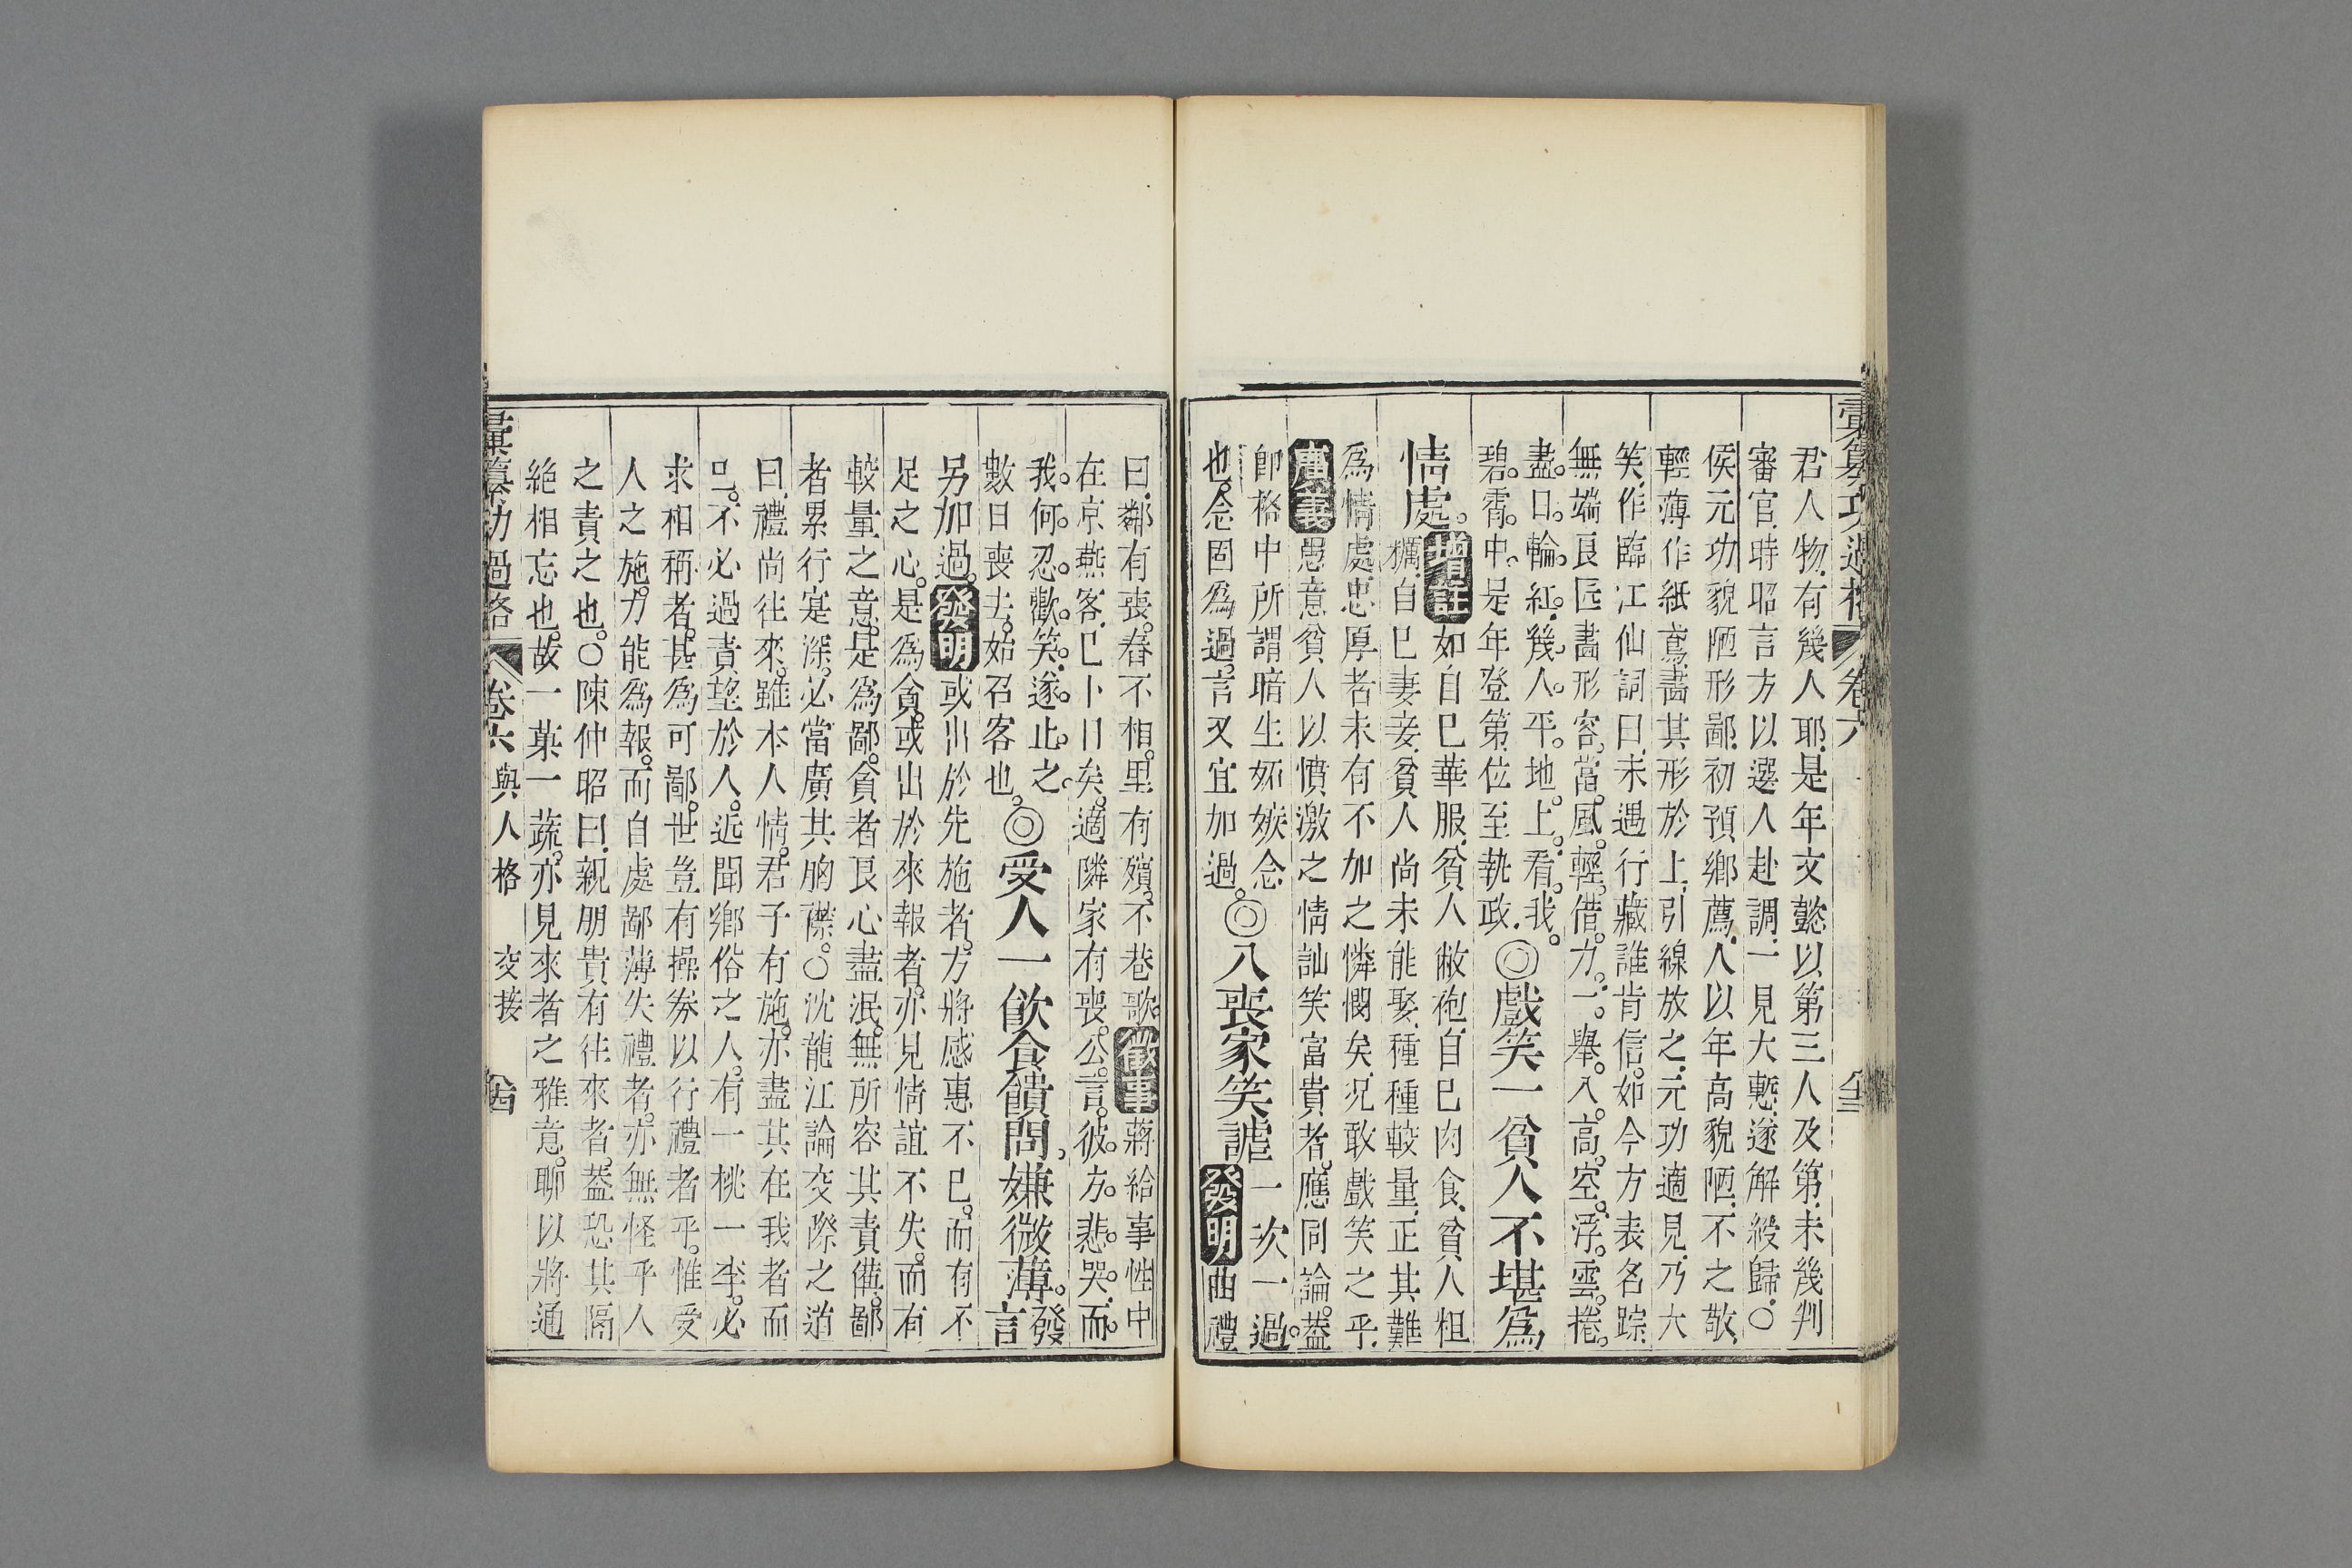 彙纂功過格 卷六
君人物.有幾人耶.是年文懿以第三人及第.未幾判
審官.時昭言方以選人赴調.一見大慙.遂解綬歸.○
侯元功貌陋形鄙.初預鄉薦.人以年高貌陋.不之敬.
輕薄作紙鳶.畵其形於上.引線放之.元功適見.乃大
笑.作臨江仙詞曰.未遇行藏誰肯信.如今方表名踪.
無端良匠畵形容.當風輕借力.一舉入高空.浮雲捲
盡口輪紅.幾人平地上.看我
碧霄中.是年登第.位至執政.
◎戲笑一貧人不堪爲
情處。
增註如自己華服.貧人敝袍.自己肉食.貧人粗
糲.自己妻妾.貧人尚未能娶.種種較量.正其難
爲情處.忠厚者未有不加之憐憫矣.况敢戲笑之乎.
廣義愚意貧人以憤激之情訕笑富貴者.應同論.葢
卽格中所謂暗生妬嫉念
也.念固爲過.言又宜加過.
◎入喪家笑謔
一次一過。
發明曲禮
曰.鄰有喪.舂不相.里有殯.不巷歌.徵事蔣給事性中
在京.燕客.已卜日矣.適隣家有喪.公言.彼方悲哭.而
我何忍歡笑.遂止之.
數日喪去.始召客也.
◎受人一飲食饋問.嫌微薄.
發
言
另加過.發明或出於先施者.方將感惠不已.而有不
足之心.是爲貪.或出於來報者.亦見情誼不失.而有
較量之意.是爲鄙.貪者良心盡泯.無所容其責備.鄙
者累行寔深.必當廣其胸襟.○沈龍江論交際之道
曰.禮尚往來.雖本人情.君子有施.亦盡其在我者而
已.不必過責望於人.近聞鄉俗之人.有一桃一李.必
求相稱者.甚爲可鄙.世豈有操券以行禮者乎.惟受
人之施.力能爲報.而自處鄙薄失禮者.亦無怪乎人
之責之也.○陳仲昭曰.親朋貴有往來者.葢恐其隔
絶相忘也.故一菓一蔬.亦見來者之雅意.聊以將通
彙纂功過格 卷六 與人格 交接